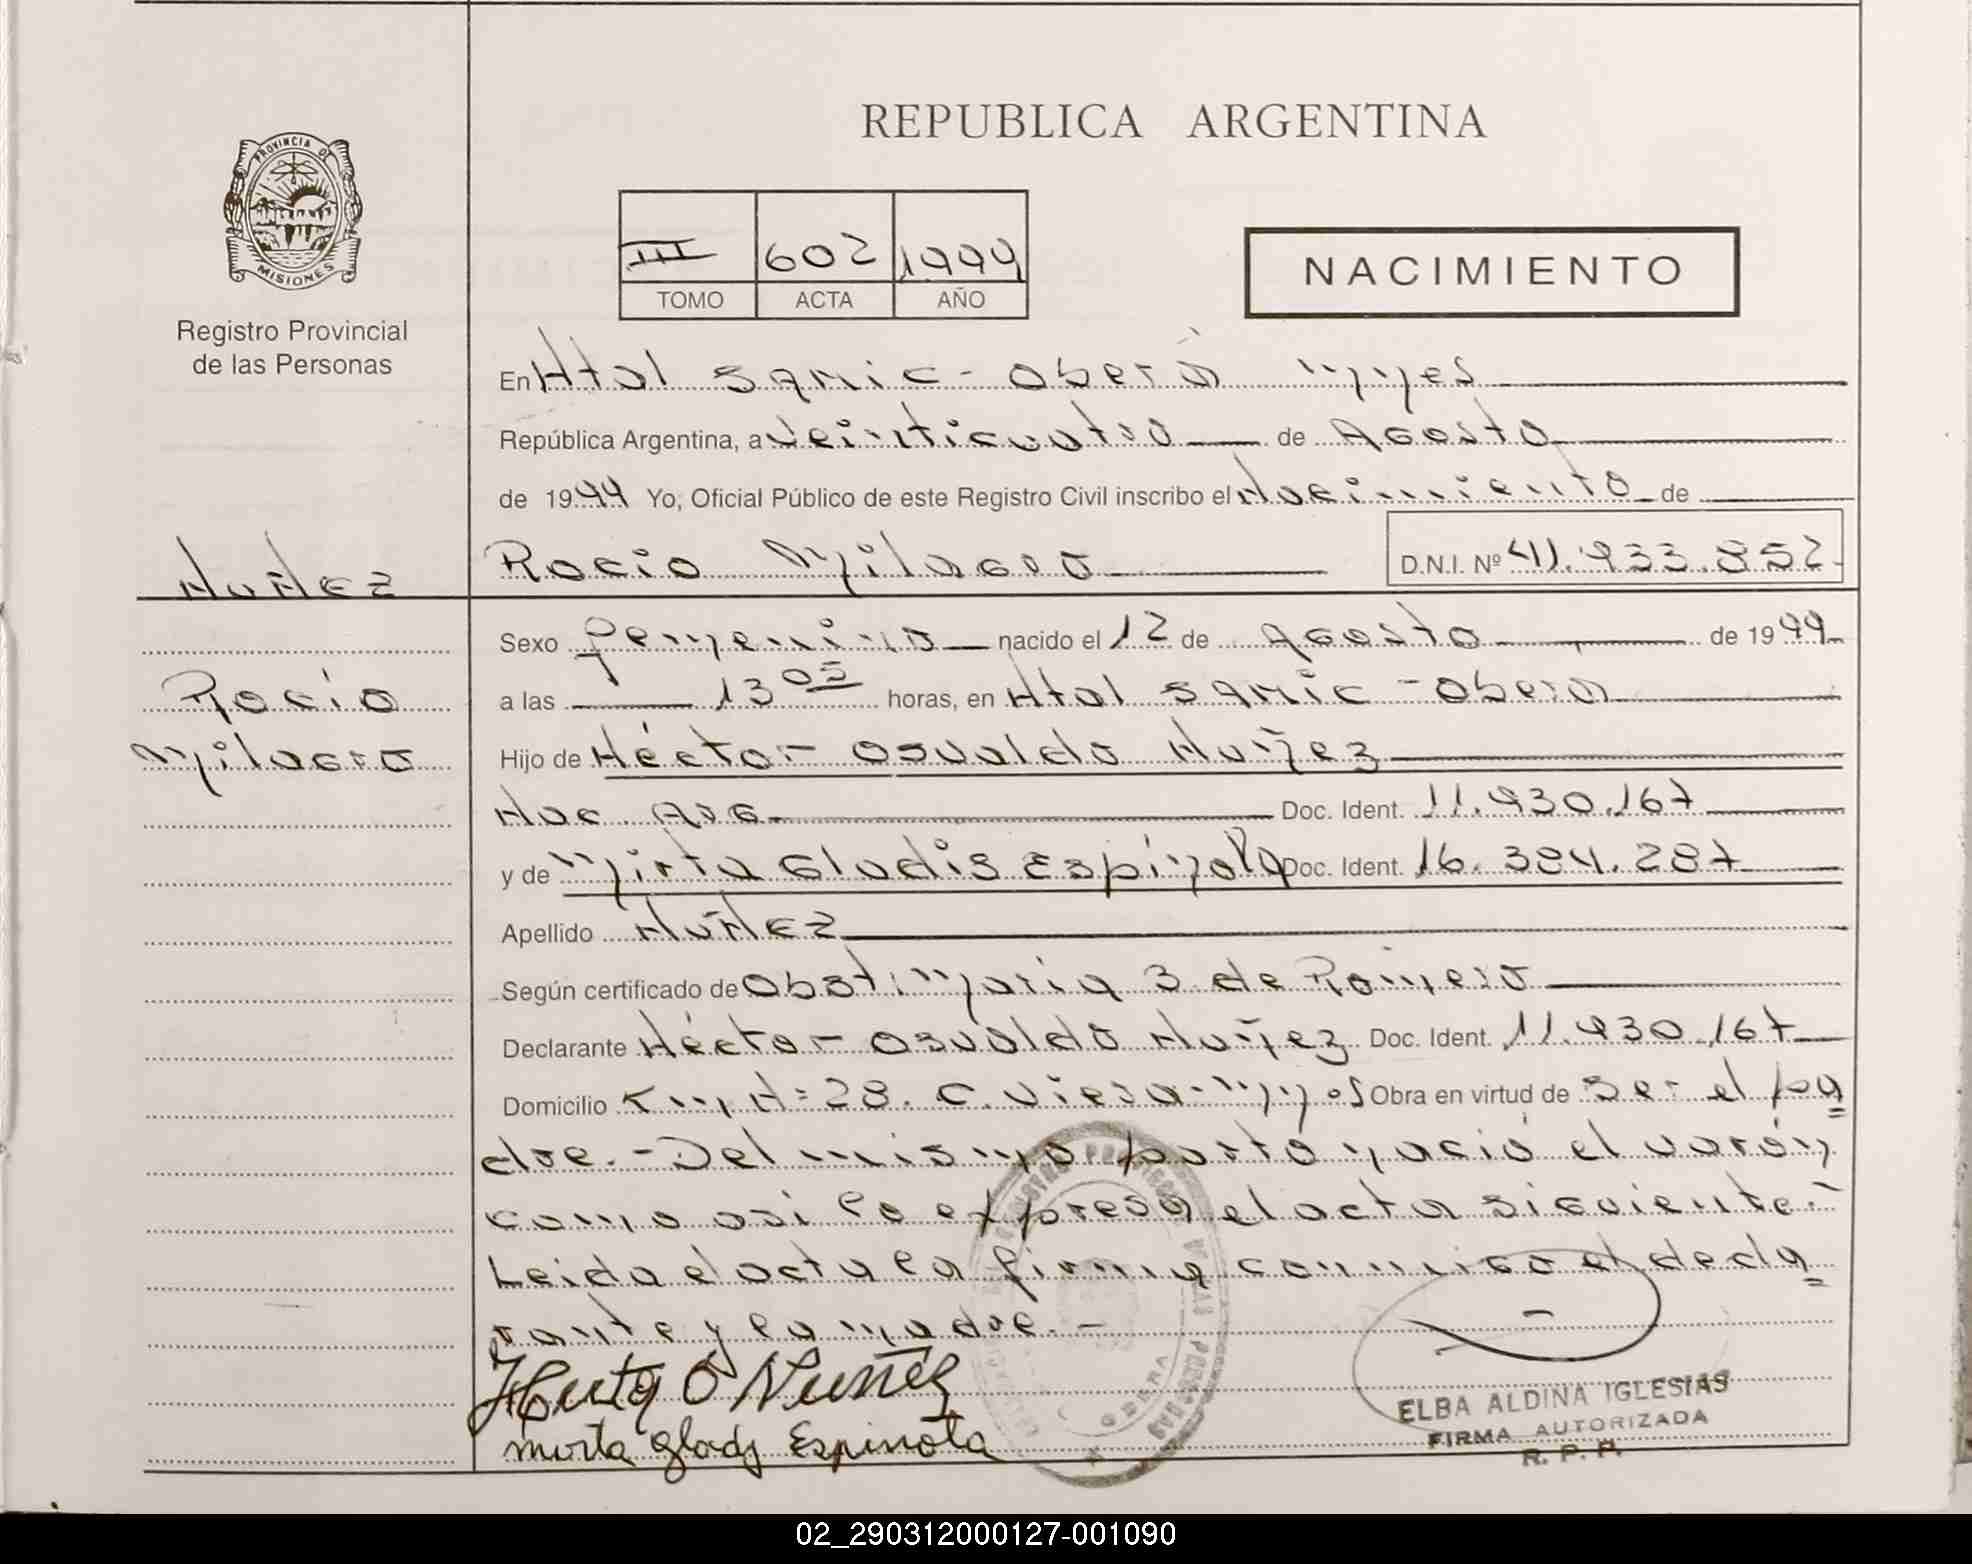 REPUBLICA ARGENTINA
PROVINCIA DE
MISIONES
Registro Provincial
de las Personas
III 602 1999
TOMO ACTA AÑO
NACIMIENTO
En Htal SAMIC - Oberá Mnes
República Argentina, a veinticuatro de Agosto
de 1999 Yo, Oficial Público de este Registro Civil inscribo el Nacimiento de
Nuñez
Rocio Milagro D.N.I. Nº 41.933.852
Sexo Femenino nacido el 12 de Agosto de 1999
Rocío
a las 13 05 horas, en Htal SAMIC - Oberá
Milagro
Hijo de Héctor Osvaldo Nuñez
Nac Arg Doc. Ident. 11.930.167
y de Mirta Gladis Espínola Doc. Ident. 16.384.287
Apellido Nuñez
Según certificado de Obst: María 3 de Romero
Declarante Héctor Osvaldo Nuñez Doc. Ident. 11.930.167
Domicilio Km N= 28. C. Viera - Mnes Obra en virtud de ser el pa
dre. - Del mismo parto nació el varón
como asi lo expresa el acta siguiente. -
Leida el acta la firma conmigo el decla
rante y la madre. -
Hector O Nuñez
Mirta Glady Espinola
OBERA
ELBA ALDINA IGLESIAS
FIRMA AUTORIZADA
R. P. P.
02_290312000127-001090